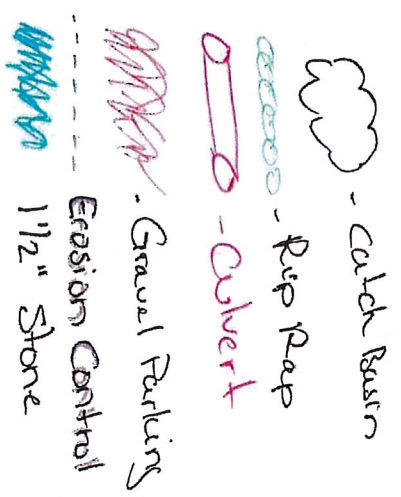 - Catch Basin
- Rip Rap
- Culvert
- Gravel Parking
Erosion Control
1 1/2" Stone